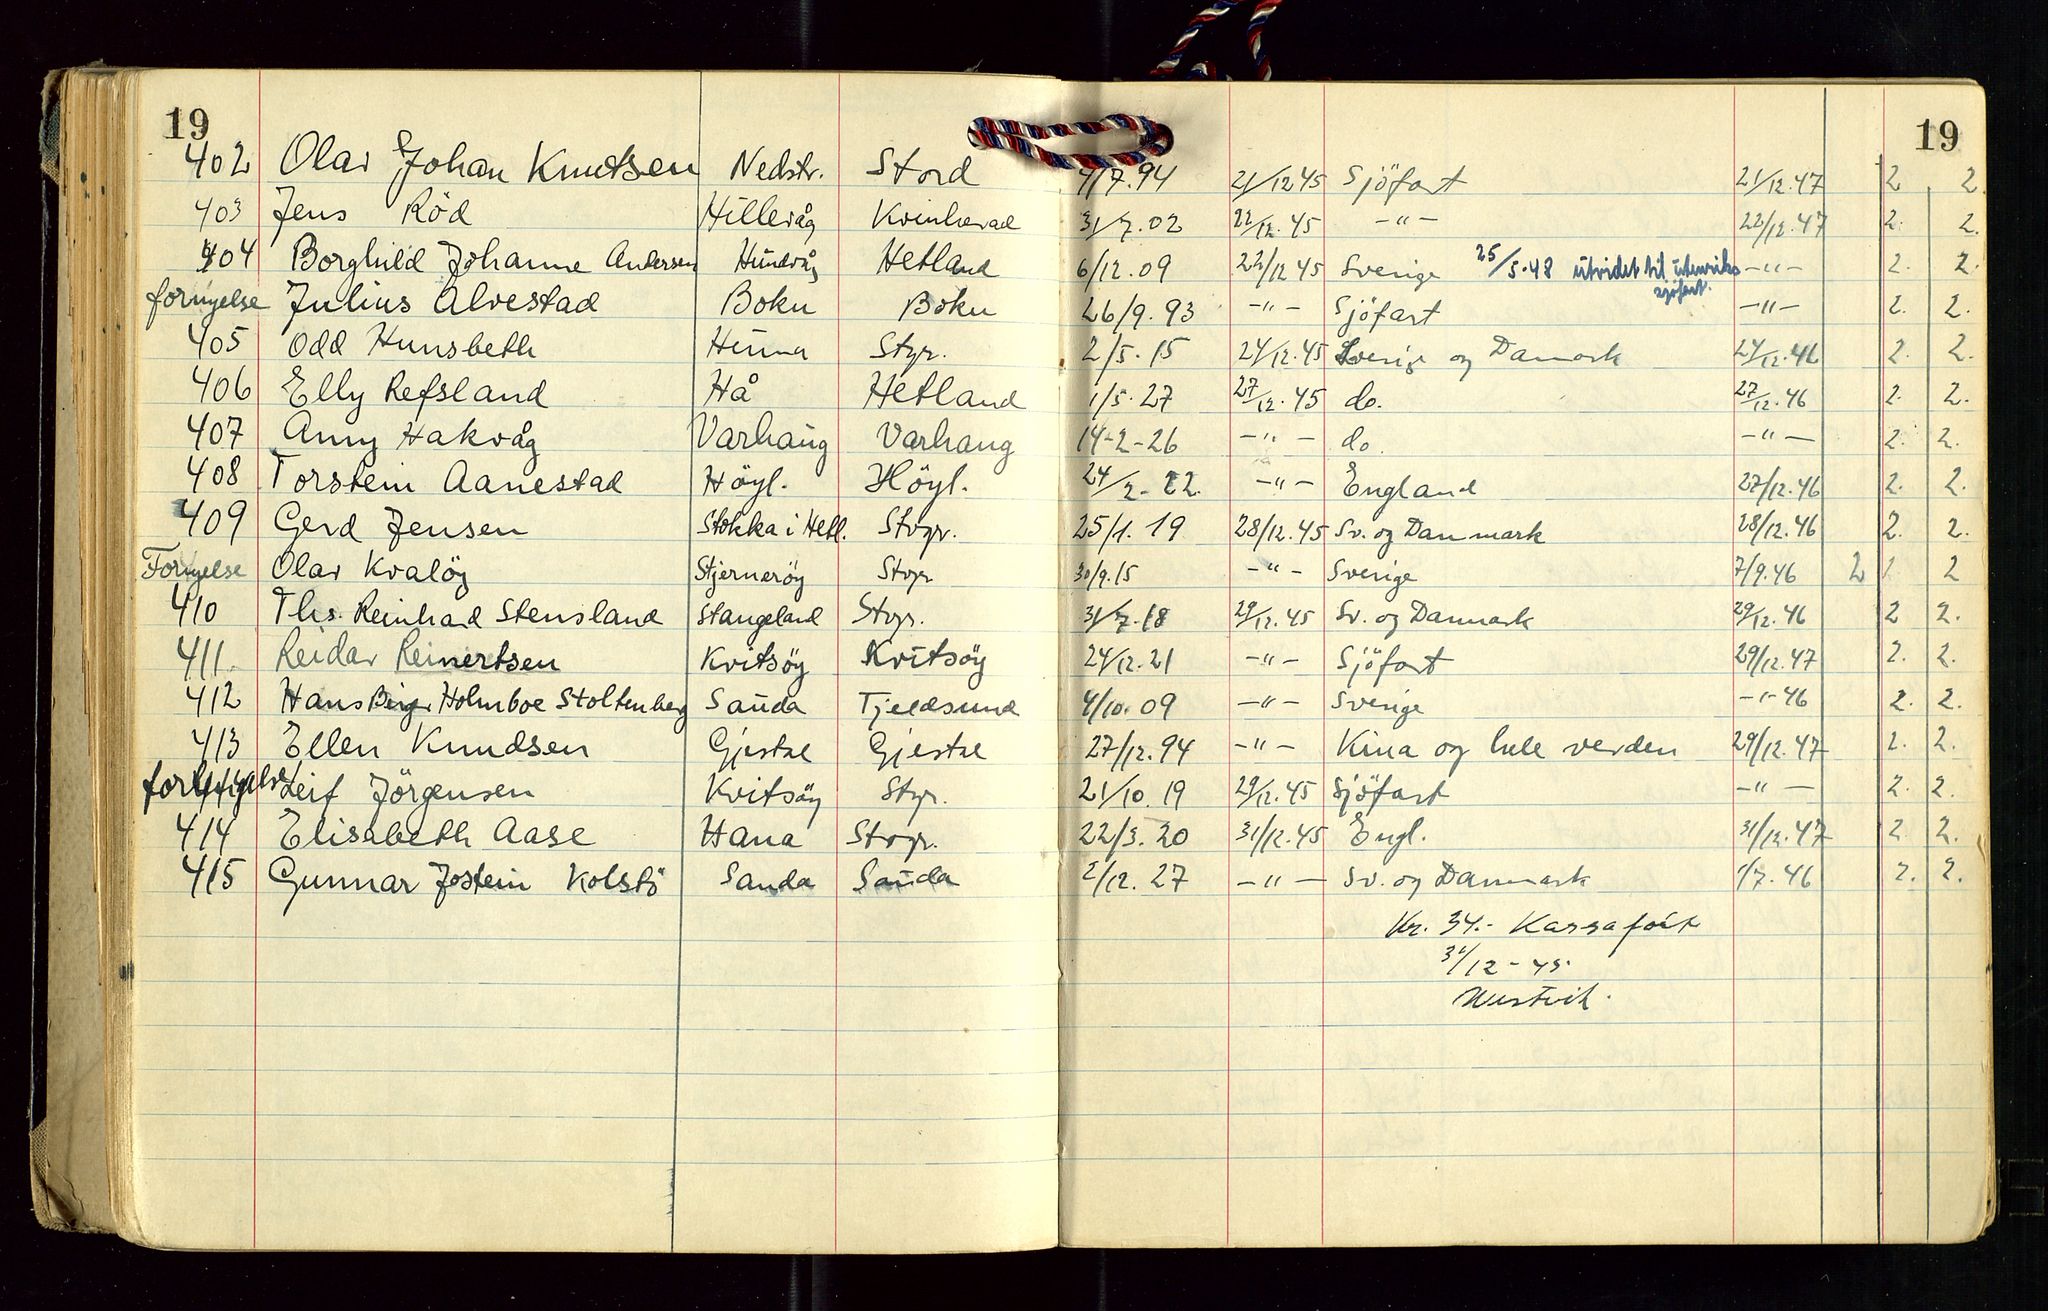 19 19
402 Olav Johan Knutsen Nedstr. Stord 4/7.94 21/12 45 Sjöfart 21/12.47 2 2.
403 Jens Röd Hillevåg Kvinherad 31/7.02 22/12.45 -"- 22/12.47 2. 2.
404 Borghild Johanne Andersen Hundvåg Hetland 6/12.09 22/12 45 Sverige 25/5.48 utvidet til utenriks sjöfart. -"- 2. 2.
fornyelse Julius Alvestad Bokn Bokn 26/9.93 -"- Sjöfart -"- 2. 2.
405 Odd Hunsbeth Hinna Stgr. 2/5.15 24/12.45 Sverige og Danmark 24/12.46 2. 2.
406 Elly Refsland Hå Hetland 1/5.27 27/12.45 do. 27/12.46 2. 2.
407 Anny Hakvåg Varhaug Varhaug 14-2-26 -"- do. -"- 2. 2.
408 Torstein Aanestad Högl. Högl. 24/2-22. -"- England 27/12.46 2. 2.
409 Gerd Jensen Stokka i Hetl. Stvgr. 25/1.19 28/12.45 Sv. og Danmark 28/12.46 2. 2.
Fornyelse Olav Kvalöy Stjernaröy Stvgr. 30/9.15 -"- Sverige 7/9.46 2 2
410 Ths. Reinhard Stensland Stangeland Stvgr. 31/7.18 29/12.45 Sv. og Danmark 29/12.46 2 2.
411. Reidar Reinertsen Kvitsöy Kvitsöy 24/12.21 -"- Sjöfart 29/12.47 2. 2.
412 Hans Birger Holmboe Stoltenberg Sauda Tjeldsund 4/10.09 -"- Sverige -"- 46 2. 2.
413 Ellen Knudsen Gjestal Gjestal 27/12.94 -"- Kina og hele verden 29/12.47 2. 2.
fornyelse Leif Jörgensen Kvitsöy Stgr. 21/10.19 29/12.45 Sjöfart -"- 2. 2.
414 Elisabeth Aase Hana Stvgr. 22/3.20 31/12.45 Engl. 31/12.47 2. 2.
415 Gunnar Jostein Kolstö Sauda Sauda 2/12.27 -"- Sv. og Danmark 1/7.46 2. 2.
Kr. 34.- Kassafört
31/12-45.